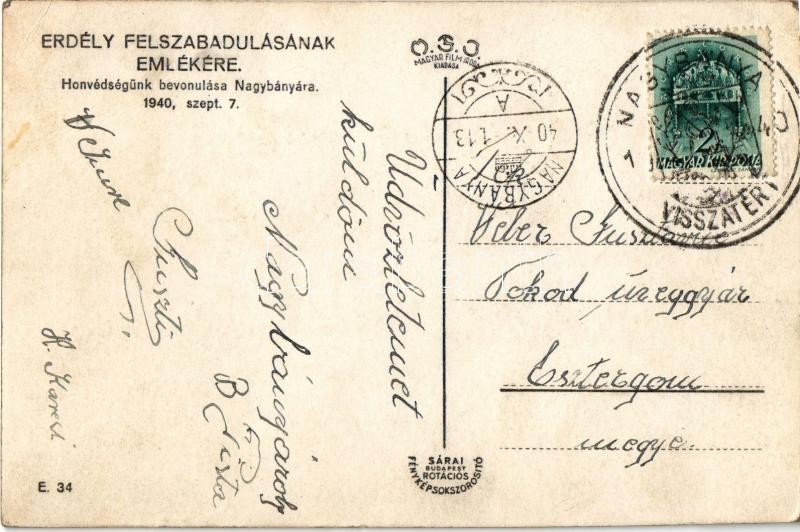 ERDÉLY FELSZABADULÁSÁNAK
EMLÉKÉRE.
Honvédségünk bevonulása Nagybányára.
1940, szept. 7.
MAGYAR FILM IRODA
KIADÁSA
NAGYBÁNYA
A
40. X. -1. 13
NAGYBÁNYA
1940
VISSZATÉRT
2
MAGYAR KIR. POSTA
Üdvözletemet
küldöm
Nagybányáról
B Pista
Juszti
K. Karcsi
Veber Jusztáné
Tokod üveggyár
Esztergom
megye.
SÁRAI
BUDAPEST
ROTÁCIÓS
FÉNYKÉPSOKSZOROSÍTÓ
E. 34